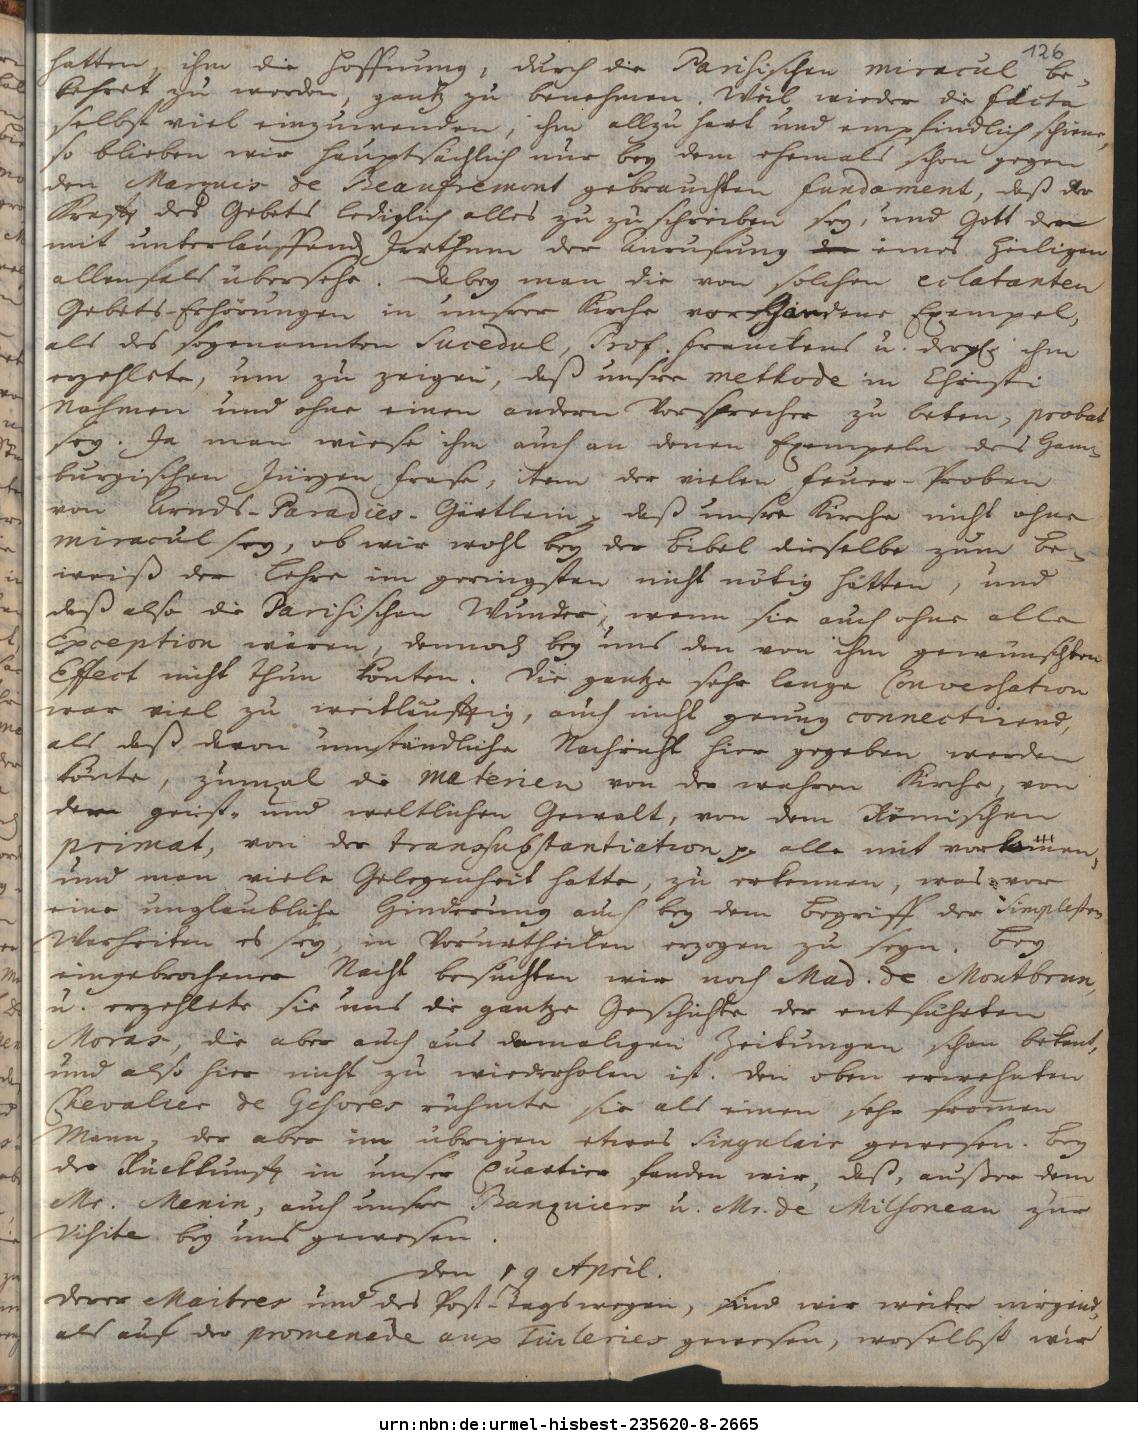 126
hatten, ihm die Hoffnung, durch die Parisischen miracul be-
kehret zu werden, gantz zu benehmen. Weil wieder die facta
selbst viel einzuwenden, ihm allzu hart und empfindlich schiene,
so blieben wir hauptsächlich nur bey dem ehemals schon gegen
den Marquis de Beaufremont gebrauchten fundament, daß der
Krafft des Gebets lediglich alles zu zu schreiben sey, und Gott den
mit unterlauffend Irrthum der Anruffung eines Heiligen
allenfals übersehe. Dabey man die von solchen eclatanten
Gebets-Erhörungen in unsrer Kirche vorhandene Exempel,
als des sogenannten Sucedul, Prof. Franckens u. dergl. ihm
erzehlete, um zu zeigen, daß unsre methode in Christi
Nahmen und ohne einen andern Vorsprecher zu beten, probat
sey. Ja man wiese ihm auch an denen Exempeln des Ham-
burgischen Jürgen Frese, item der vielen Feuer-Proben
von Arnds-Paradies-Gärtlein, daß unsre Kirche nicht ohne
miracul sey, ob wir wohl bey der Bibel dieselbe zum Be-
weiß der Lehre im geringsten nicht nötig hätten, und
daß also die Parisischen Wunder, wenn sie auch ohne alle
Exception wären, dennoch bey uns den von ihm gewünschten
Effect nicht thun könten. Die gantze sehr lange Conversation
war viel zu weitläufftig, auch nicht genung connectirend,
als daß davon umständliche Nachricht hier gegeben werden
könte, zumal die materien von der wahren Kirche, von
dem geist- und weltlichen Gewalt, von dem Römischen
primat, von der transsubstantiation p. alle mit vorkamen,
und man viele Gelegenheit hatte, zu erkennen, was vor
eine unglaubliche Hinderung auch bey dem Begriff der simplesten
Warheiten es sey, in Vorurtheilen erzogen zu seyn. Bey
eingebrochener Nacht besuchten wir noch Mad. de Montbrun,
u. erzehlete sie uns die gantze Geschichte der entführten
Moras, die aber auch aus damaligen Zeitungen schon bekant,
und also hier nicht zu wiederholen ist. Den oben erwehnten
Chevalier de Gesvres rühmte sie als einen sehr frommen
Mann, der aber im übrigen etwas Singulair gewesen. Bey
der Rückkunfft in unser Quartier fanden wir, daß, außer dem
Mr. Menin, auch unsre Banquiers u. Mr. de Milsoneau zur
Visite bey uns gewesen.
den 19 April.
Derer Maitres und des Post-Tags wegen, sind wir weiter nirgend,
als auf der promenade aux Tuileries gewesen, woselbst wir
urn:nbn:de:urmel-hisbest-235620-8-2665